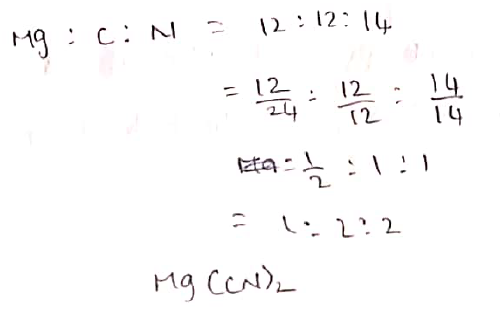 Mg : C : N = 12 : 12 : 14
= 12/24 : 12/12 : 14/14
= 1/2 : 1 : 1
= 1 : 2 : 2
Mg(CN)2